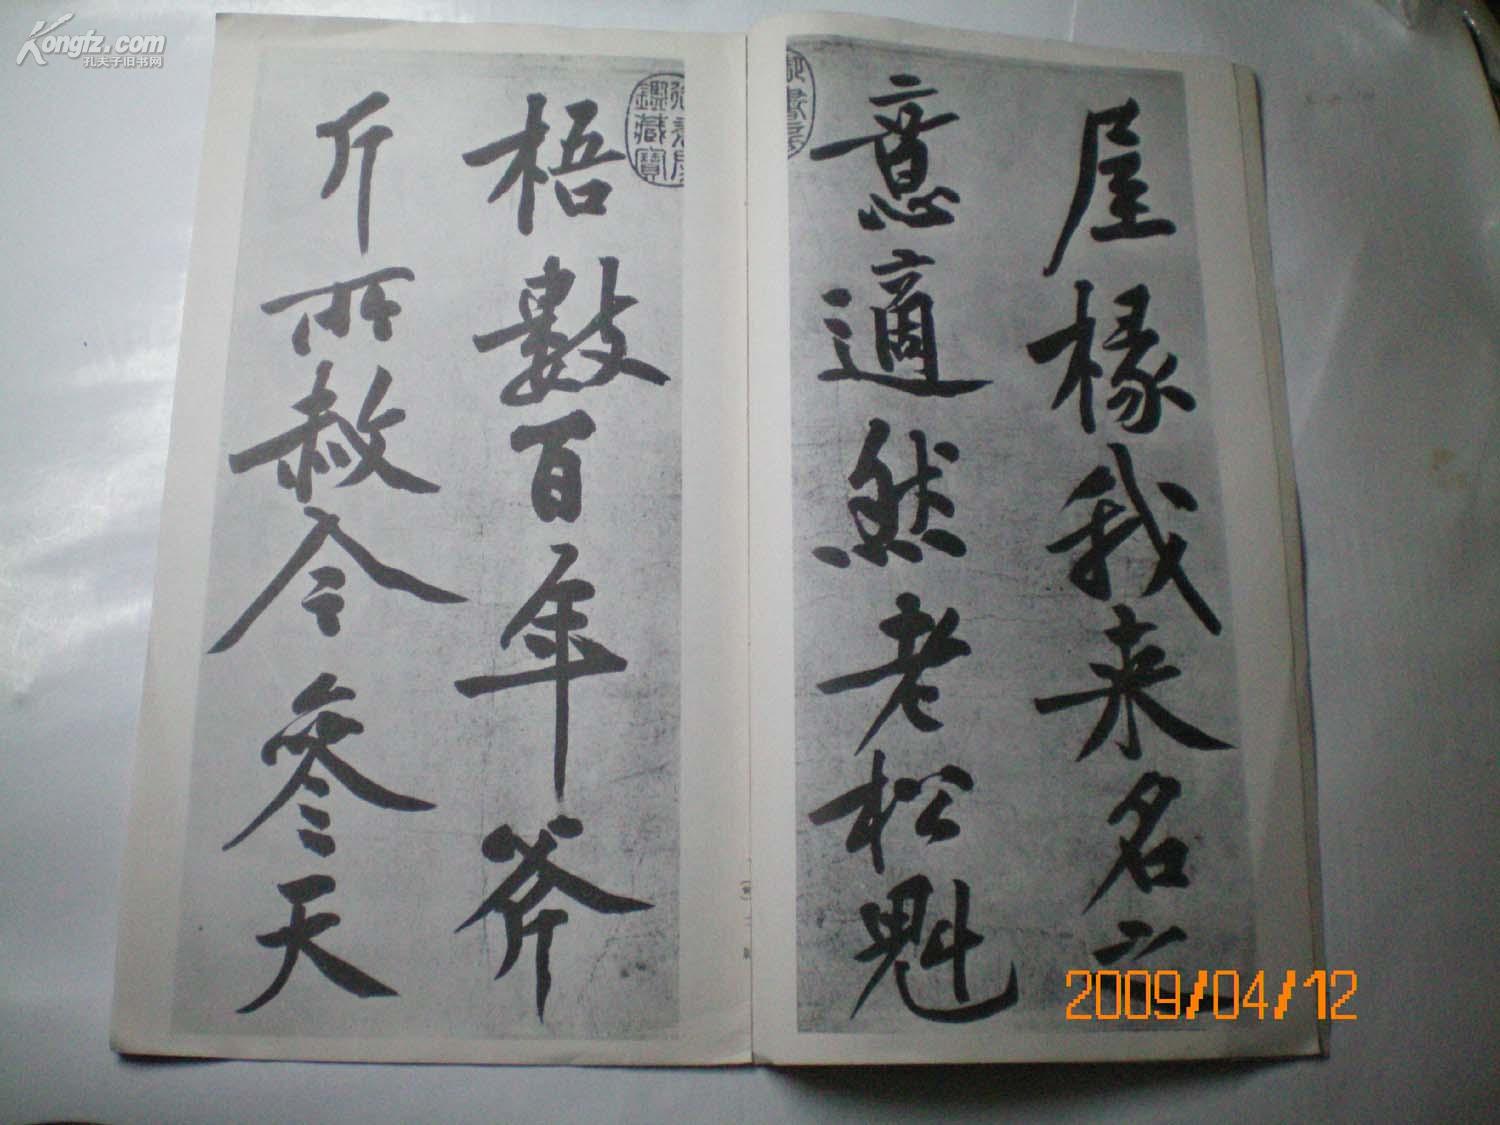 屋椽我来名之
意適然老松魁
梧數百年斧
斤所赦今參天
鑑藏寶
Kongfz.com
孔夫子旧书网
2009/04/12